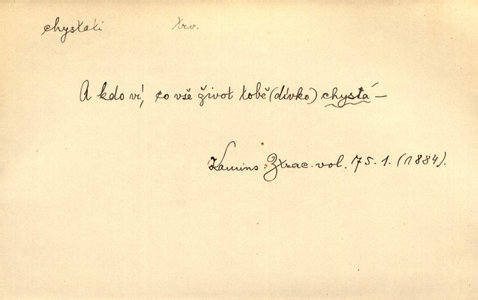 chystati trv.
A kdo ví, co vše život tobě (dívko) chystá —
Kamins. Ztrac. vol. 75. 1. (1884).